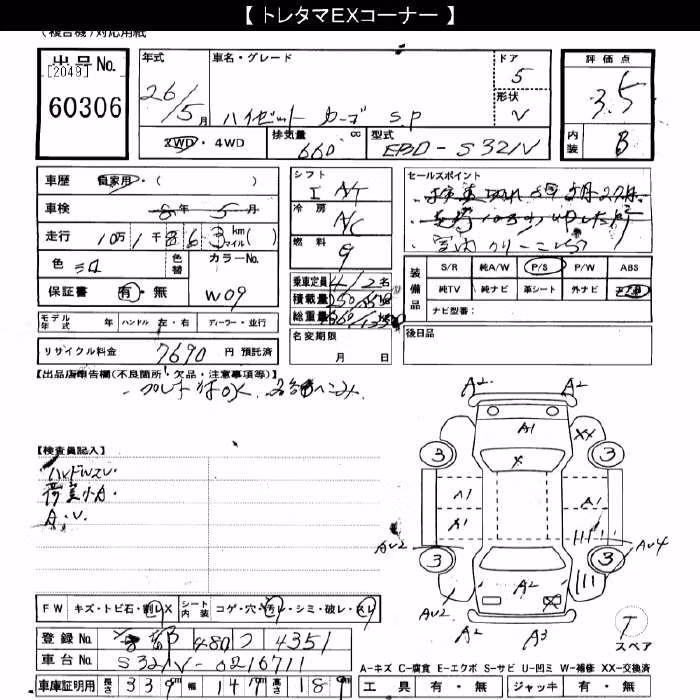 【 トレタマEXコーナー 】
(複合機)対応用紙
出品No.
[2049]
60306
年式
26/5月
車名・グレード
ハイゼット カーゴ SP
ドア
5
形状
V
評価点
3.5
内装
B
2WD・4WD
排気量
660
cc
型式
EBD-S321V
車歴
自家用・( )
車検
8年 5月
走行
10万1千863
km
マイル
( )
色
シロ
色替
カラーNo.
W09
保証書
有・無
シフト
I A/T
冷房
A/C
燃料
9
乗車定員
4/2名
積載量
総重量
セールスポイント
室内クリーニング
装備品
S/R
純A/W
P/S
P/W
ABS
純TV
純ナビ
革シート
外ナビ
エアB
ナビ型番:
モデル年式
年
ハンドル
左・右
ディーラー・並行
リサイクル料金
7690
円 預託済
名変期限
月 日
後日品
【出品店申告欄(不良箇所・欠品・注意事項等)】
【検査員記入】
ハンドルスレ・
荷室小A・
A・U・
A2
A2
A1
XX
X
3
3
A1
A1
A1
AU2
3
3
AU4
A2
XX
AU2
A2
A3
T
スペア
FW
キズ・トビ石・割レX
シート内装
コゲ・穴・汚レ・シミ・破レ・スレ
登録No.
480 つ 4351
車台No.
S321V-0216711
車庫証明用
長さ
339
cm
幅
147
cm
高さ
189
cm
A-キズ C-腐食 E-エクボ S-サビ U-凹ミ W-補修 XX-交換済
工具
有・無
ジャッキ
有・無